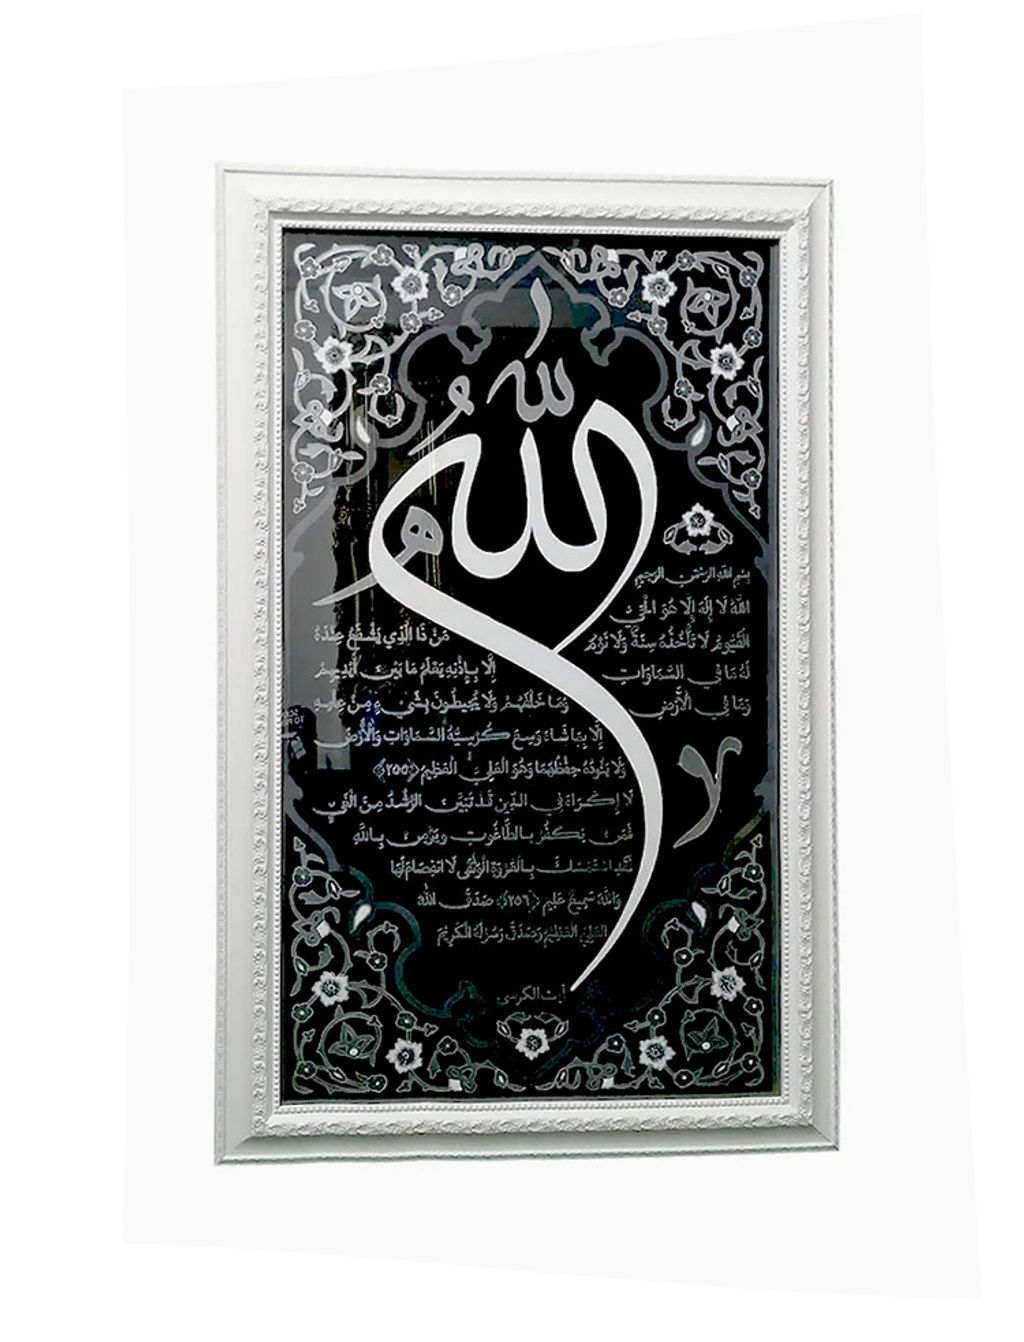 الله
بسم الله الرحمن الرحيم
الله لا إله إلا هو الحي
القيوم لا تأخذه سنة ولا نوم
له ما في السماوات
وما في الأرض
من ذا الذي يشفع عنده
إلا بإذنه يعلم ما بين أيديهم
وما خلفهم ولا يحيطون بشيء من علمه
إلا بما شاء وسع كرسيه السماوات والأرض
ولا يئوده حفظهما وهو العلي العظيم ﴿٢٥٥﴾
لا إكراه في الدين قد تبين الرشد من الغي
فمن يكفر بالطاغوت ويؤمن بالله
فقد استمسك بالعروة الوثقى لا انفصام لها
والله سميع عليم ﴿٢٥٦﴾ صدق الله
العلي العظيم وصدق رسوله الكريم
آيت الكرسي